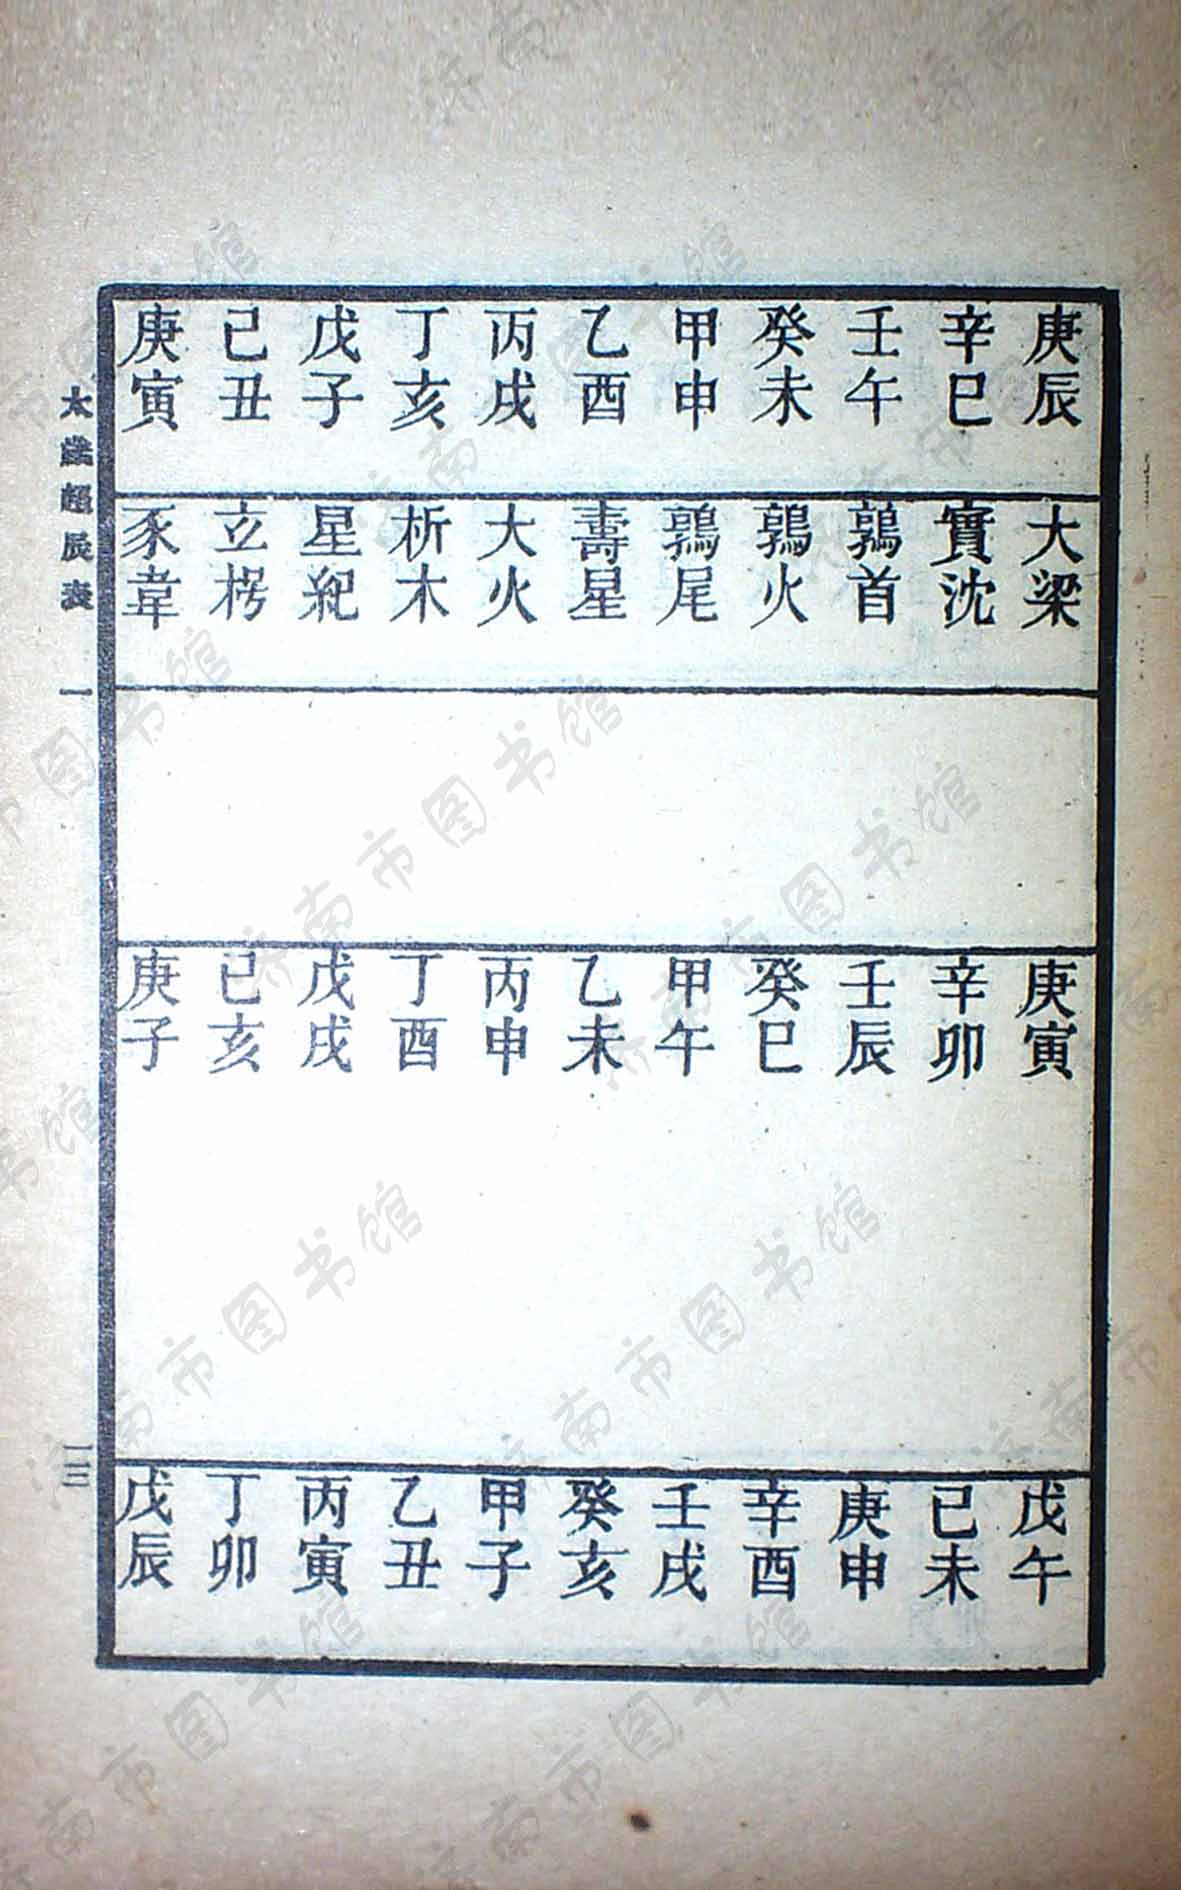 庚辰 大梁 庚寅 戊午
辛巳 實沈 辛卯 己未
壬午 鶉首 壬辰 庚申
癸未 鶉火 癸巳 辛酉
甲申 鶉尾 甲午 壬戌
乙酉 壽星 乙未 癸亥
丙戌 大火 丙申 甲子
丁亥 析木 丁酉 乙丑
戊子 星紀 戊戌 丙寅
己丑 立枵 己亥 丁卯
庚寅 豕韋 庚子 戊辰
太歲超辰表 一 一三
济南市图书馆